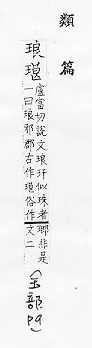 類篇
琅瑻
盧當切說文琅玕似珠者瑯非是
一曰琅邪郡古作瑻俗作
文二
(玉部 P9)